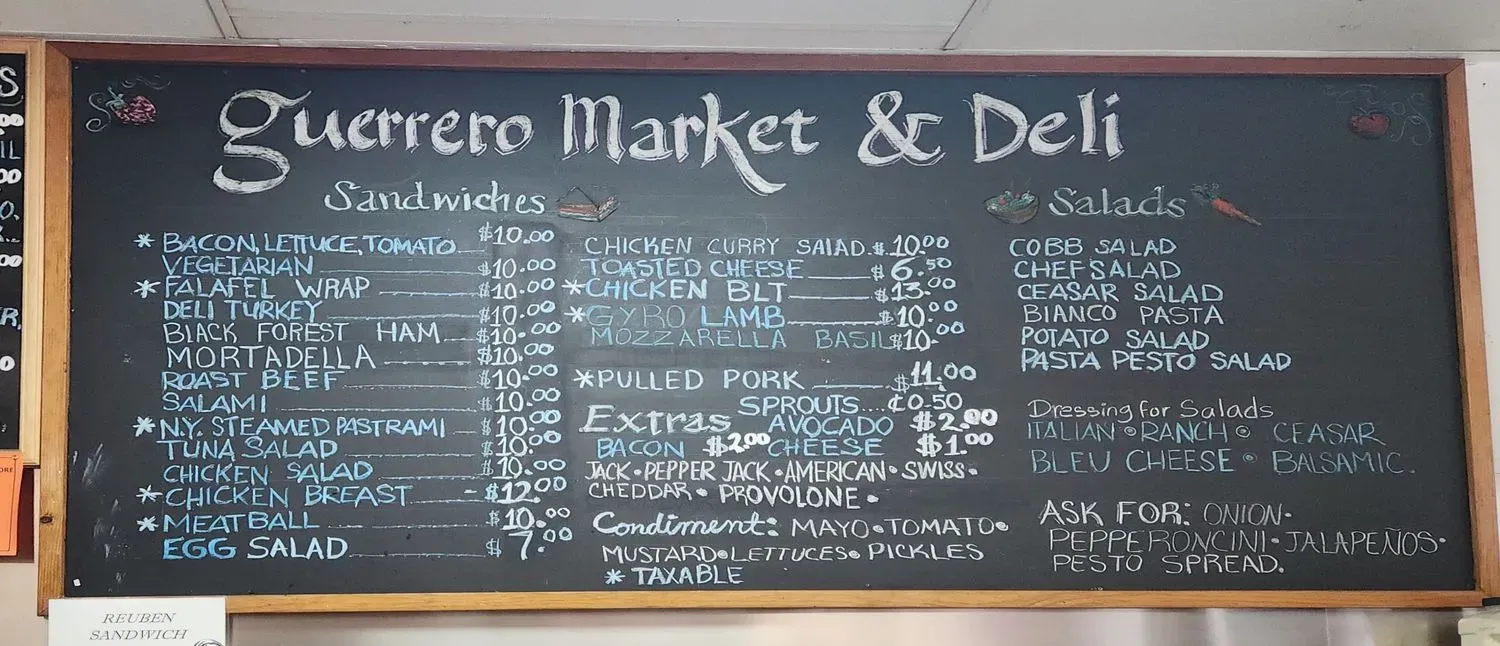 Guerrero Market & Deli
Sandwiches
* BACON, LETTUCE, TOMATO $10.00
VEGETARIAN $10.00
* FALAFEL WRAP $10.00
DELI TURKEY $10.00
BLACK FOREST HAM $10.00
MORTADELLA $10.00
ROAST BEEF $10.00
SALAMI $10.00
* N.Y. STEAMED PASTRAMI $10.00
TUNA SALAD $10.00
CHICKEN SALAD $10.00
* CHICKEN BREAST $12.00
* MEATBALL $10.00
EGG SALAD $7.00
CHICKEN CURRY SALAD $10.00
TOASTED CHEESE $6.50
* CHICKEN BLT $13.00
* GYRO LAMB $10.00
MOZZARELLA BASIL $10.00
* PULLED PORK $11.00
Extras
SPROUTS.... ¢0.50
AVOCADO $2.00
BACON $2.00 CHEESE $1.00
JACK • PEPPER JACK • AMERICAN • SWISS •
CHEDDAR • PROVOLONE •
Condiment: MAYO • TOMATO •
MUSTARD • LETTUCES • PICKLES
* TAXABLE
Salads
COBB SALAD
CHEF SALAD
CEASAR SALAD
BIANCO PASTA
POTATO SALAD
PASTA PESTO SALAD
Dressing for Salads
ITALIAN • RANCH • CEASAR
BLEU CHEESE • BALSAMIC.
ASK FOR: ONION •
PEPPERONCINI • JALAPEÑOS •
PESTO SPREAD.
REUBEN
SANDWICH